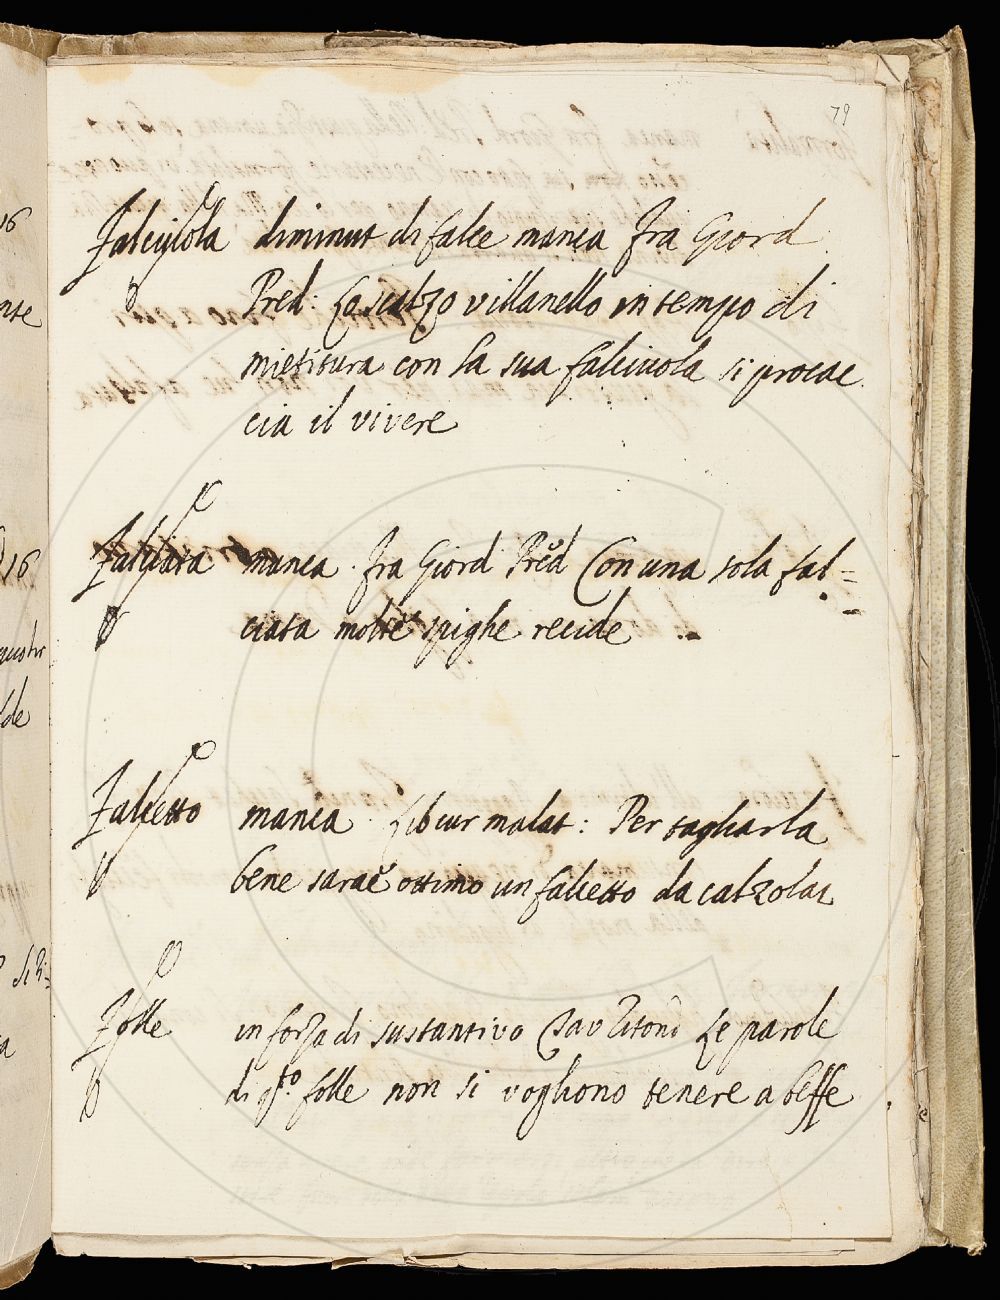 79
Falciuola diminut di falce manca Fra Giord
Pred: Lo scalzo villanello in tempo di
mietitura con la sua falciuola si procac
cia il vivere
Falciata manca. Fra Giord Pred Con una sola fal=
ciata molte spighe recide
Falcetto manca Lib cur malat: Per tagliarla
bene sarae ottimo un falcetto da calzolai
Folle in forza di sustantivo Le parole
di q.to folle non si vogliono tenere a beffe
16
nte
16
lde